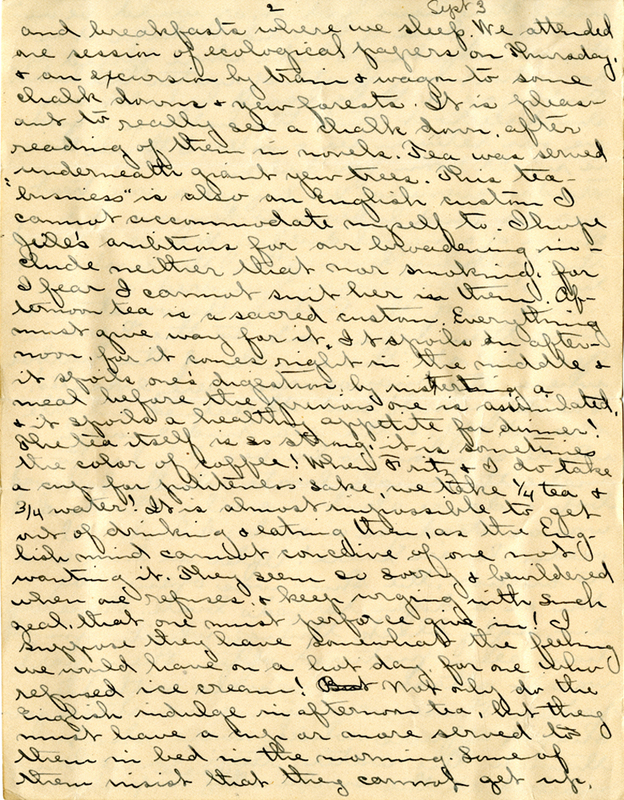 2
Sept 3
and breakfasts where we sleep. We attended
one session of ecological papers on Thursday,
& an excursion by train & wagon to some
chalk downs & yew forests. It is pleas-
ant to really see a chalk down, after
reading of them in novels. Tea was served
underneath giant yew trees. This tea-
"business" is also an English custom I
cannot accommodate myself to. I hope
ambitions for our broadening in-
clude neither that nor smoking, for
I fear I cannot suit her in them. Af-
ternoon tea is a sacred custom. Everything
must give way for it. It spoils an after-
noon, for it comes right in the middle &
it spoils one's digestion by inserting a
meal before the previous one is assimilated,
& it spoils a healthy appetite for dinner!
The tea itself is so strong, it is sometimes
the color of coffee! When Fritz & I do take
a cup for politeness' sake, we take 1/4 tea &
3/4 water! It is almost impossible to get
out of drinking & eating then, as the Eng-
lish mind cannot conceive of one not
wanting it. They seem so sorry & bewildered
when one refuses, & keep urging with such
zeal that one must perforce give in! I
suppose they have somewhat the feeling
we would have on a hot day for one who
refused ice cream! But Not only do the
English indulge in afternoon tea, but they
must have a cup or more served to
them in bed in the morning. Some of
them insist that they cannot get up,